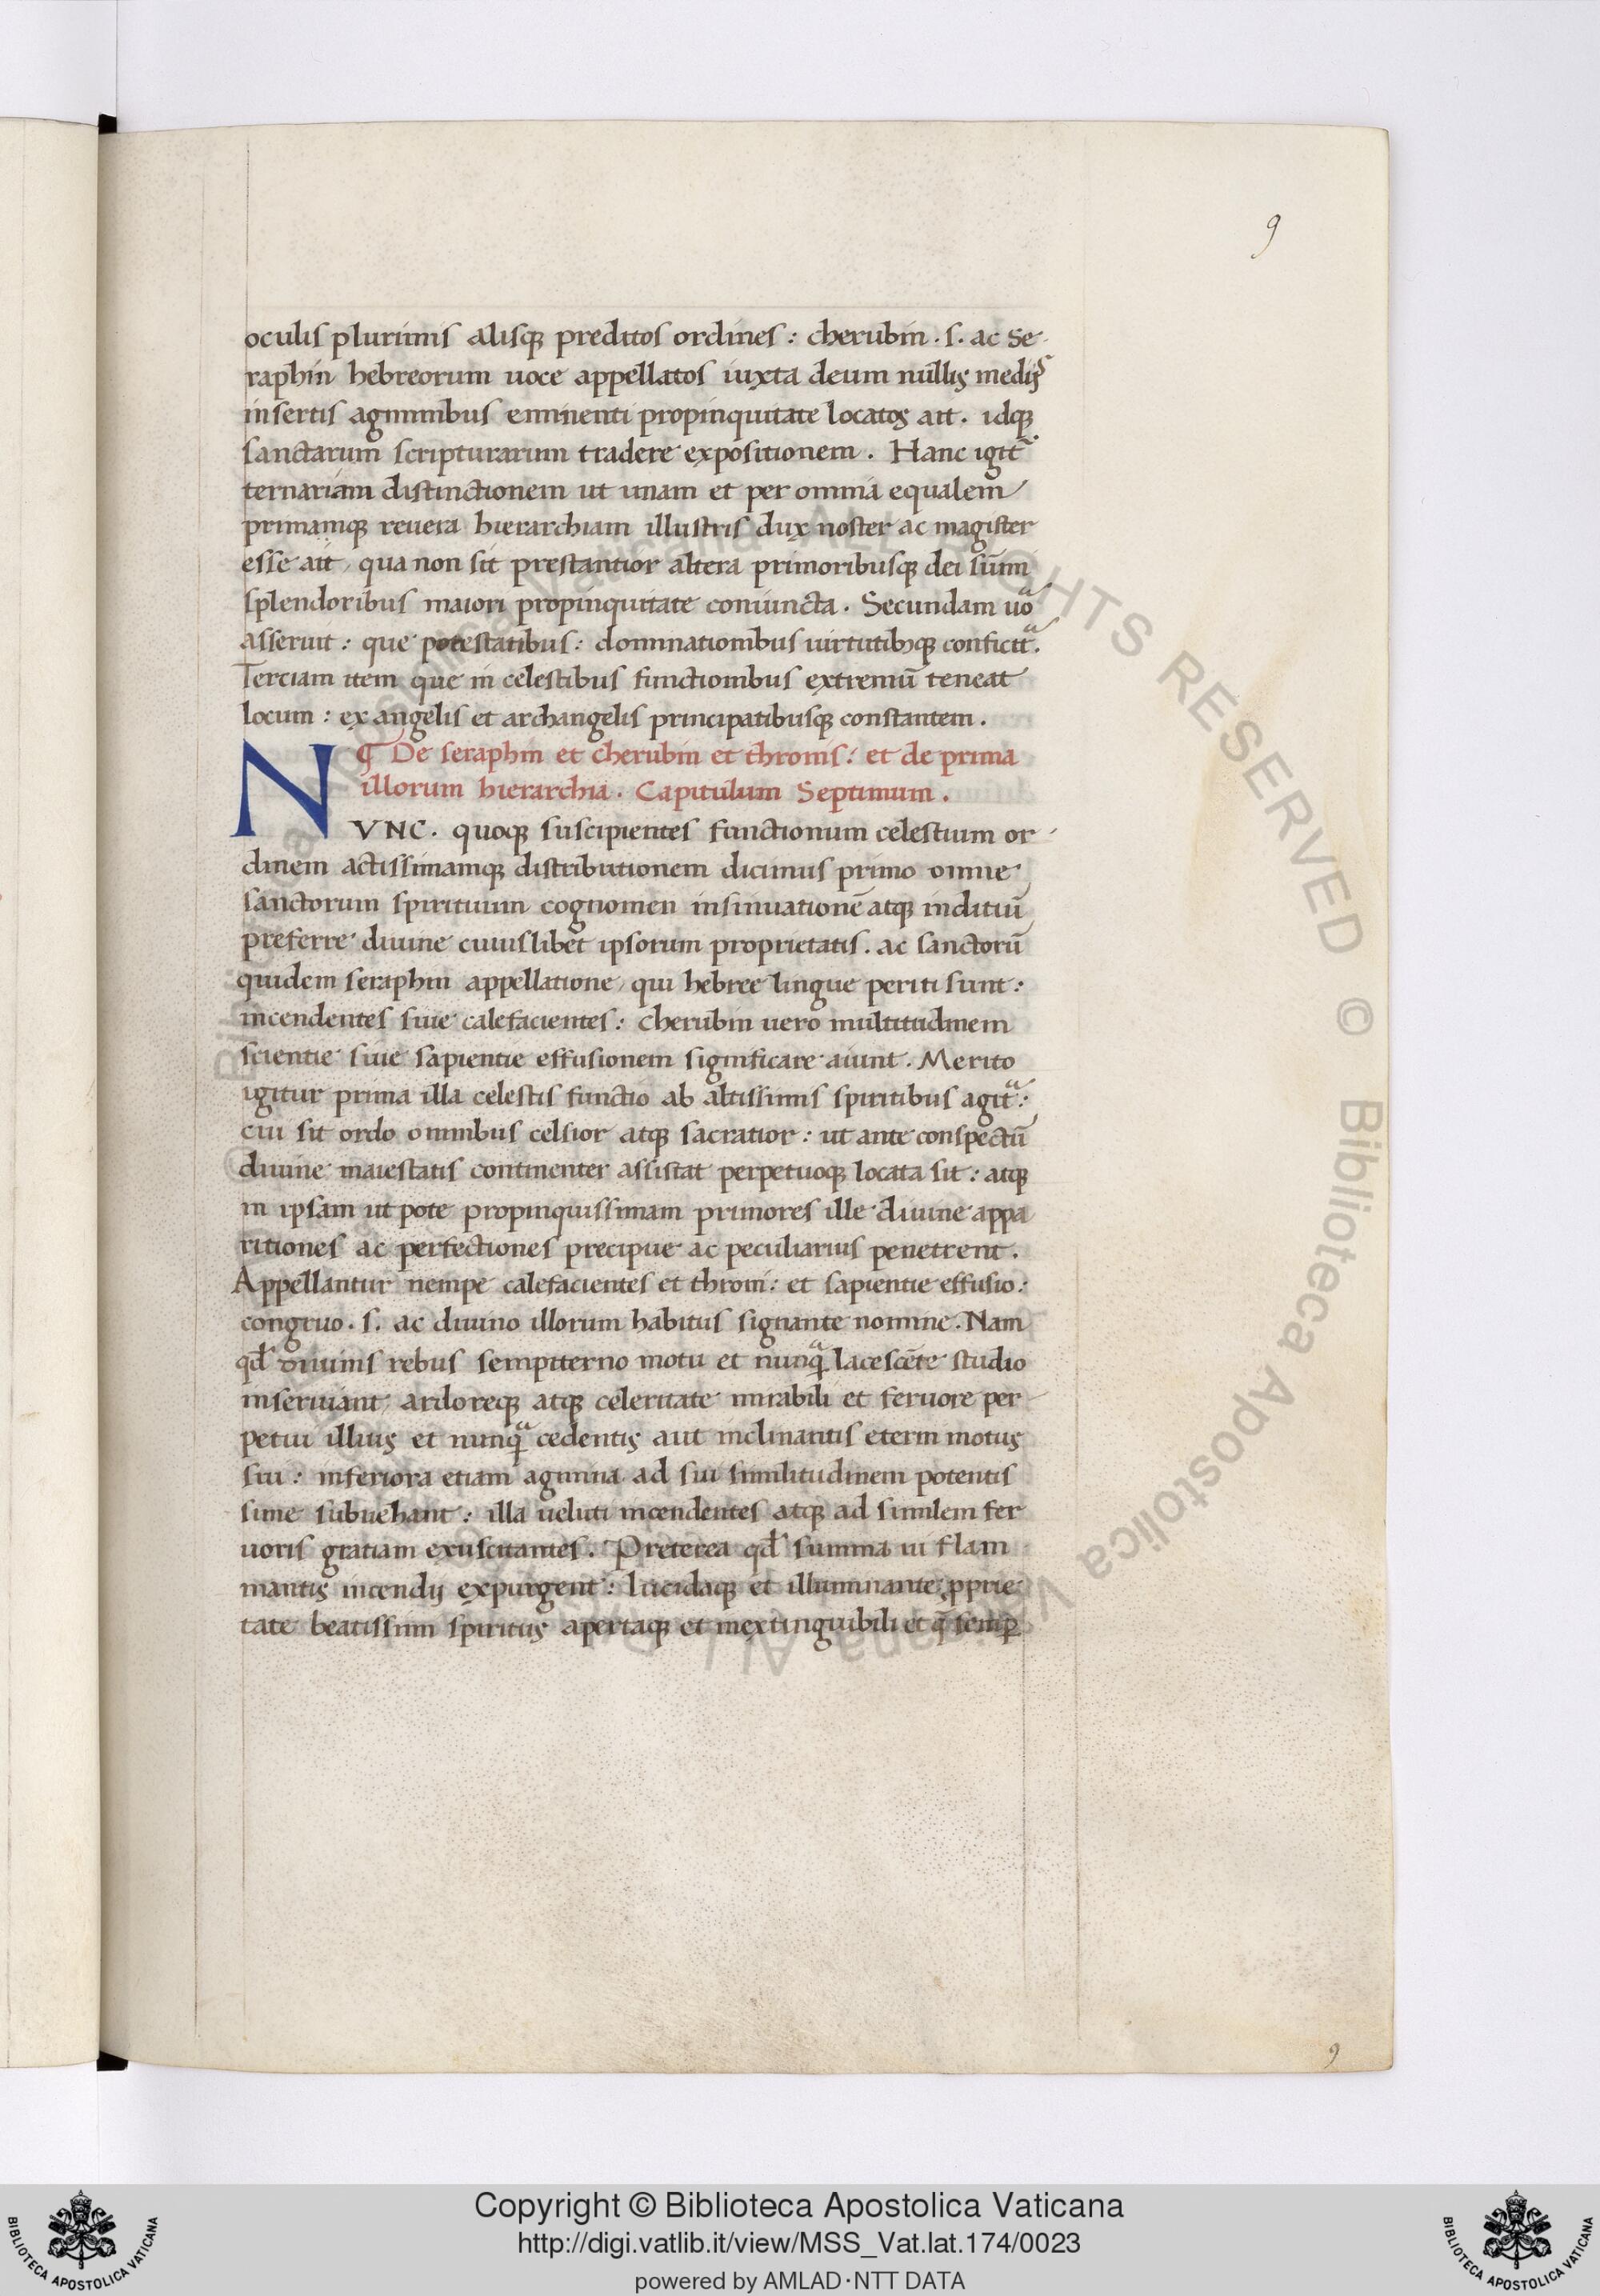 9
oculis plurimis alisqꝫ preditos ordines : cherubin . s. ac se
raphin hebreorum uoce appellatos iuxta deum nullis medijs
insertis agminibus eminenti propinquitate locatos ait . idqꝫ
sanctarum scripturarum tradere expositionem . Hanc igit᷑
ternariam distinctionem ut unam et per omnia equalem
primamqꝫ reuera hierarchiam illustris dux noster ac magister
esse ait / qua non sit prestantior altera primoribusqꝫ dei sūmi
splendoribus maiori propinquitate coniuncta . Secundam uo᷑
asseruit : que potestatibus : dominationibus uirtutibꝫqꝫ conficit᷑.
Terciam item que in celestibus functionibus extremū teneat
locum : ex angelis et archangelis principatibusqꝫ constantem .
¶ De seraphin et cherubin et thronis : et de prima
illorum hierarchia . Capitulum Septimum .
NVNC . quoqꝫ suscipientes functionum celestium or
dinem actissimamqꝫ distributionem dicimus primo omne
sanctorum spirituum cognomen insinuationē atqꝫ inditiū
preferre diuine cuiuslibet ipsorum proprietatis . ac sanctorū
quidem seraphin appellatione / qui hebree lingue periti sunt :
incendentes siue calefacientes : cherubin uero multitudinem
scientie siue sapientie effusionem significare aiunt . Merito
igitur prima illa celestis functio ab altissimis spiritibus agit᷑ :
cui sit ordo omnibus celsior atqꝫ sacratior : ut ante conspectū
diuine maiestatis continenter assistat perpetuoqꝫ locata sit : atqꝫ
in ipsam ut pote propinquissimam primores ille diuine appa
ritiones ac perfectiones precipue ac peculiarius penetrent .
Appellantur nempe calefacientes et throni : et sapientie effusio :
congruo . s. ac diuino illorum habitus signante nomine . Nam
qd̛ diuinis rebus sempiterno motu et nunqᷓ lacescēte studio
inseruiant / ardoreqꝫ atqꝫ celeritate mirabili et feruore per
petui illius et nunqᷓ cedentis aut inclinantis eterni motus
sui : inferiora etiam agmina ad sui similitudinem potentis
sime subuehant : illa ueluti incendentes atqꝫ ad similem fer
uoris gratiam exuscitantes . Preterea qd̛ summa ui flam
mantis incendij expurgent : lucidaqꝫ et illuminante ꝓprie
tate beatissimi spiritus apertaqꝫ et inextinguibili et q̄ semꝑ
9
© Biblioteca Apostolica Vaticana ALL RIGHTS RESERVED © Biblioteca Apostolica Vaticana ALL RIGHTS
Copyright © Biblioteca Apostolica Vaticana
http://digi.vatlib.it/view/MSS_Vat.lat.174/0023
powered by AMLAD·NTT DATA
BIBLIOTECA APOSTOLICA VATICANA
BIBLIOTECA APOSTOLICA VATICANA